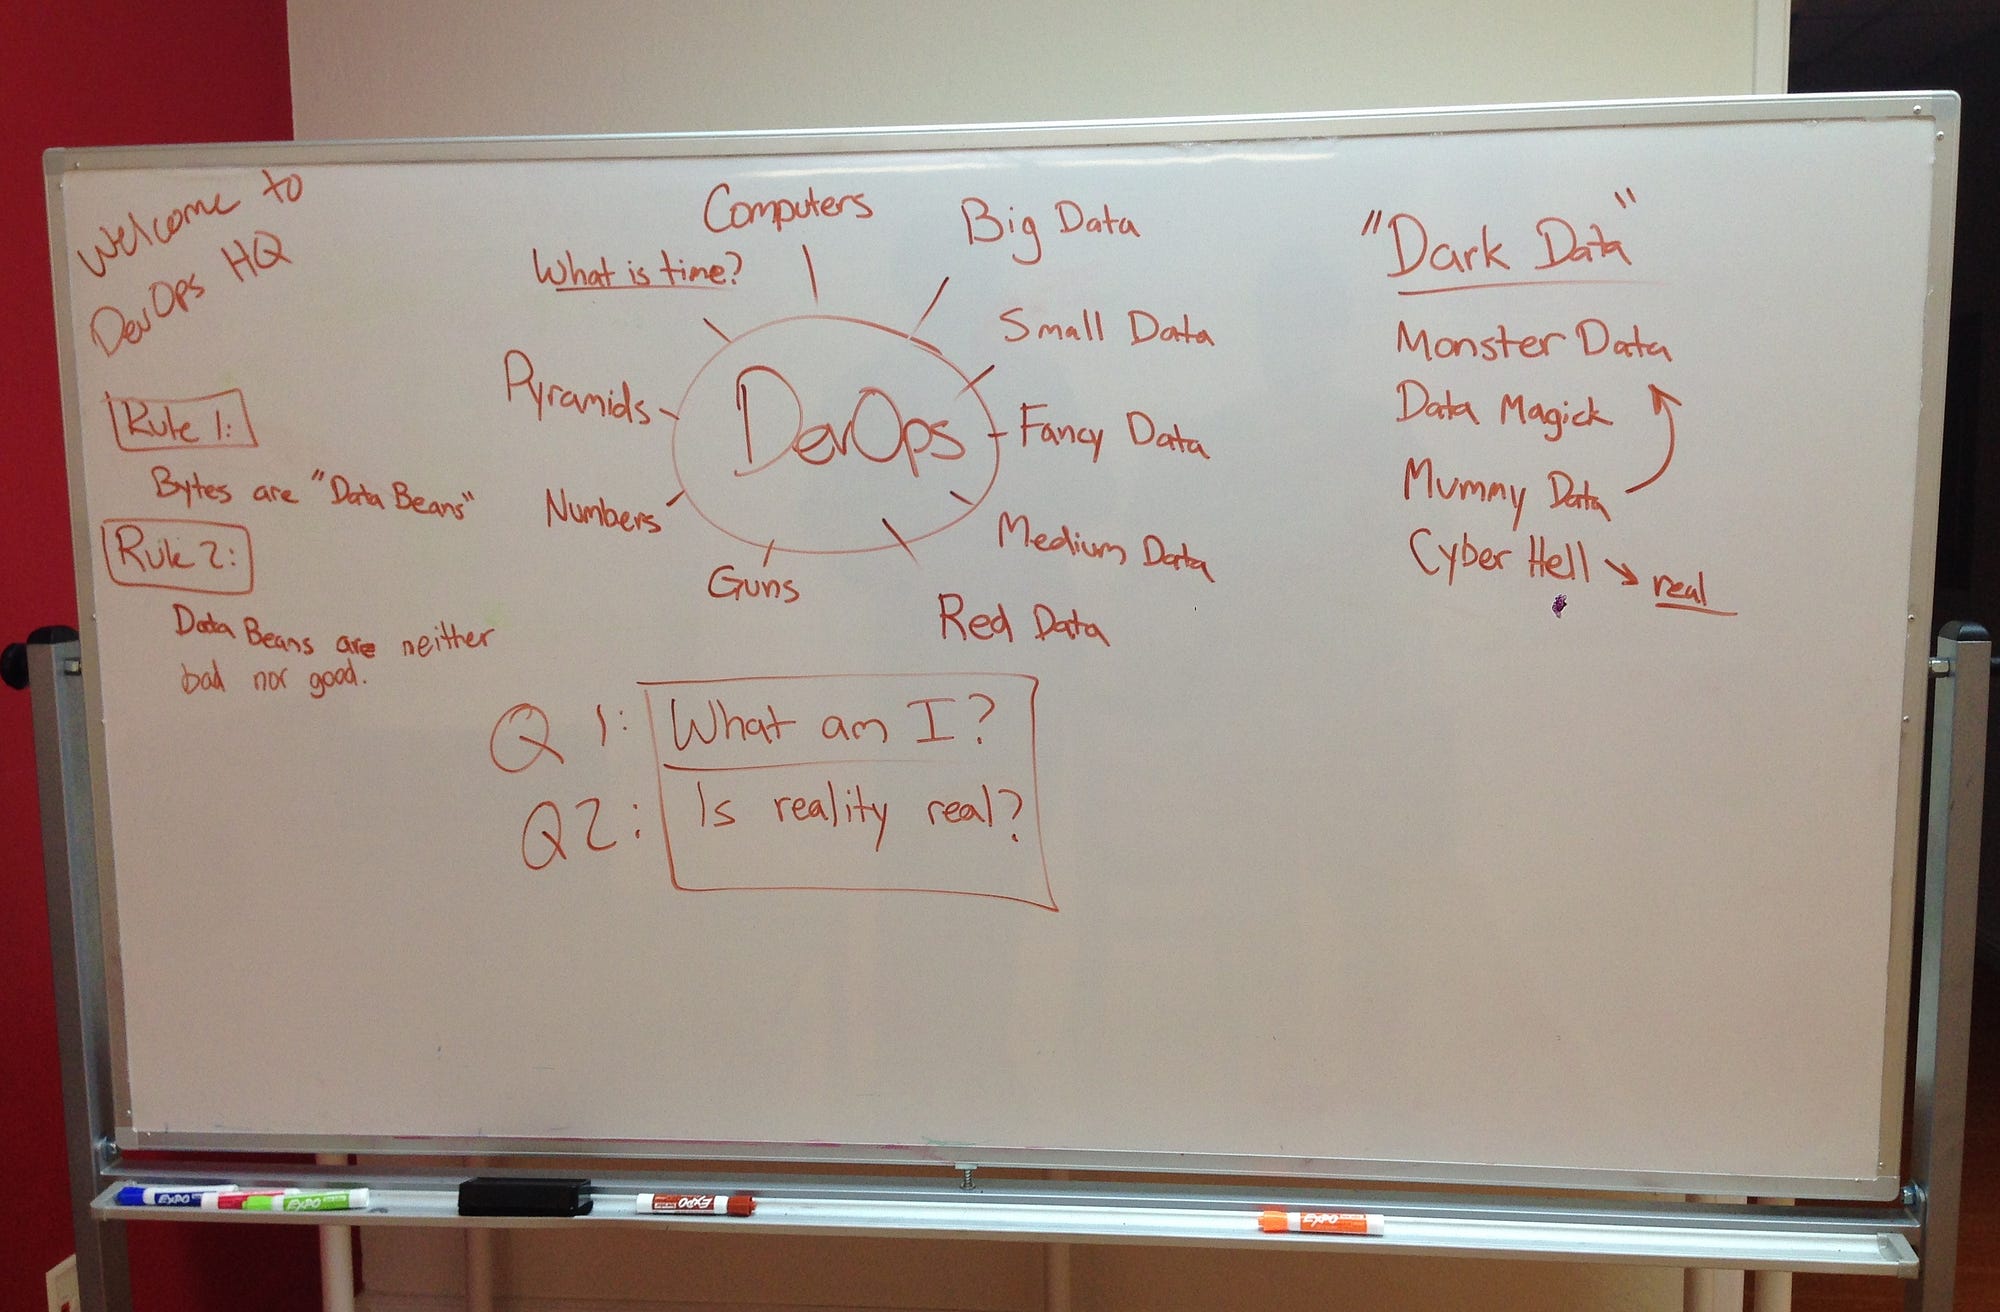 Welcome to
DevOps HQ
Rule 1:
Bytes are "Data Beans"
Rule 2:
Data Beans are neither
bad nor good.
Computers
Big Data
What is time?
Small Data
Pyramids
DevOps
Fancy Data
Numbers
Medium Data
Guns
Red Data
Q 1: What am I?
Q2: Is reality real?
"Dark Data"
Monster Data
Data Magick
Mummy Data
Cyber Hell → real
EXPO
EXPO
EXPO
EXPO